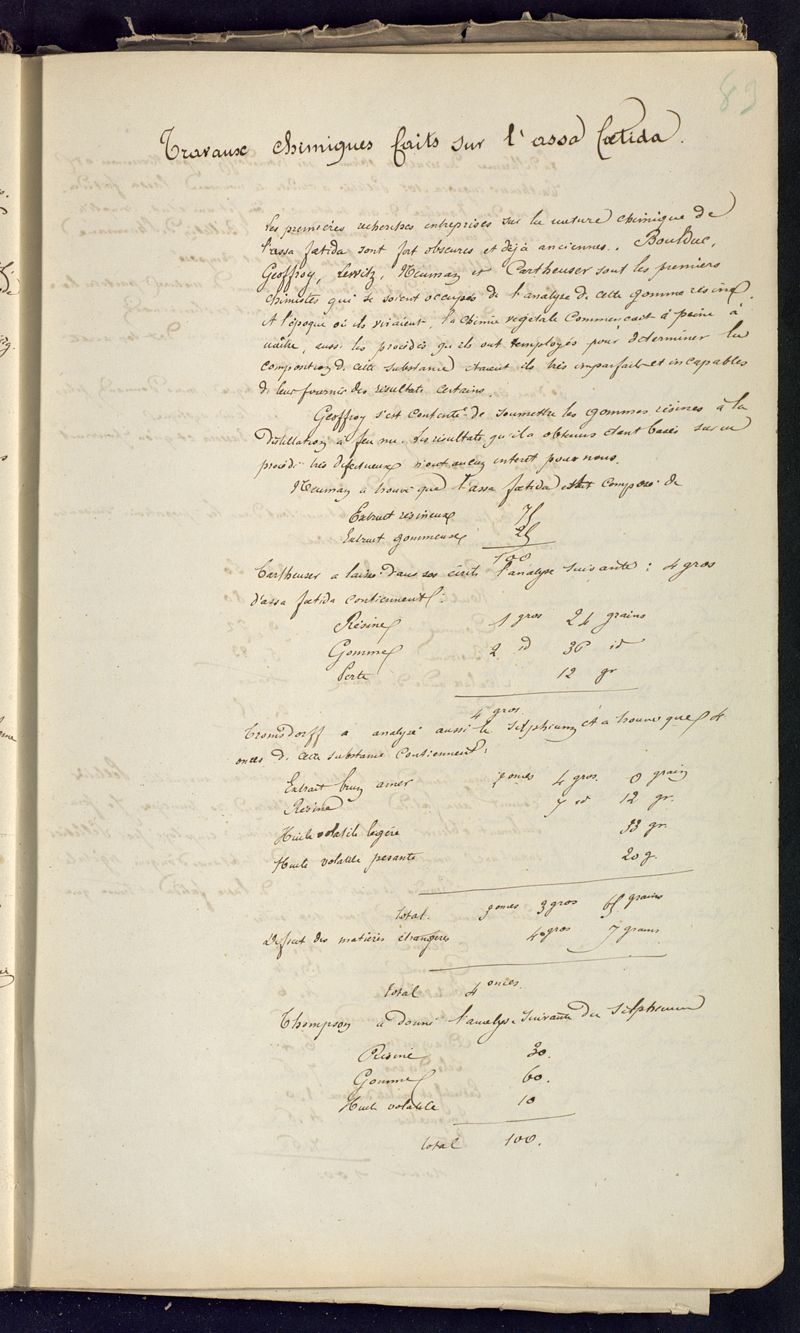 89
Travaux chimiques faits sur l'assa foetida.
Les premières recherches entreprises sur la nature chimique de
l'assa foetida sont fort obscures et déjà anciennes. Boulduc,
Geoffroy, Neuman et Cartheuser sont les premiers
chimistes qui se soient occupés de l'analyse de cette gomme résine.
A l'époque où ils vivaient, la chimie végétale commençait à peine à
naître, aussi les procédés qu'ils ont employés pour déterminer la
composition de cette substance étaient ils très imparfaits et incapables
de leur fournir des résultats certains.
Geoffroy s'est contenté de soumettre les gommes résines à la
distillation à feu nu. Les résultats qu'il a obtenus étant basés sur un
procédé très défectueux n'ont aucun interet pour nous.
Neuman a trouvé que l'assa foetida était composé de
Extrait résineux 75
Extrait gommeux 25
100
Cartheuser a laissé dans ses écrits l'analyse suivante : 4 gros
d'assa foetida contiennent :
Résine 1 gros 24 grains
Gomme 2 id 36 id
Perte 12 gr
4 gros.
Tromsdorff a analysé aussi le Silphium et a trouvé que 4
onces de cette substance contiennent :
Extrait brun amer 2 onces 4 gros 0 grain
Résine 7 id 12 gr.
Huile volatile legère 33 gr.
Huile volatile pesante 20 g.
Total. 3 onces 3 gros 65 grains
Déficit des matières étrangères 4 gros 7 grains
Total 4 onces.
Thompson a donné l'analyse suivante du Silphium
Résine 30.
Gomme 60.
Huile volatile 10
Total 100.